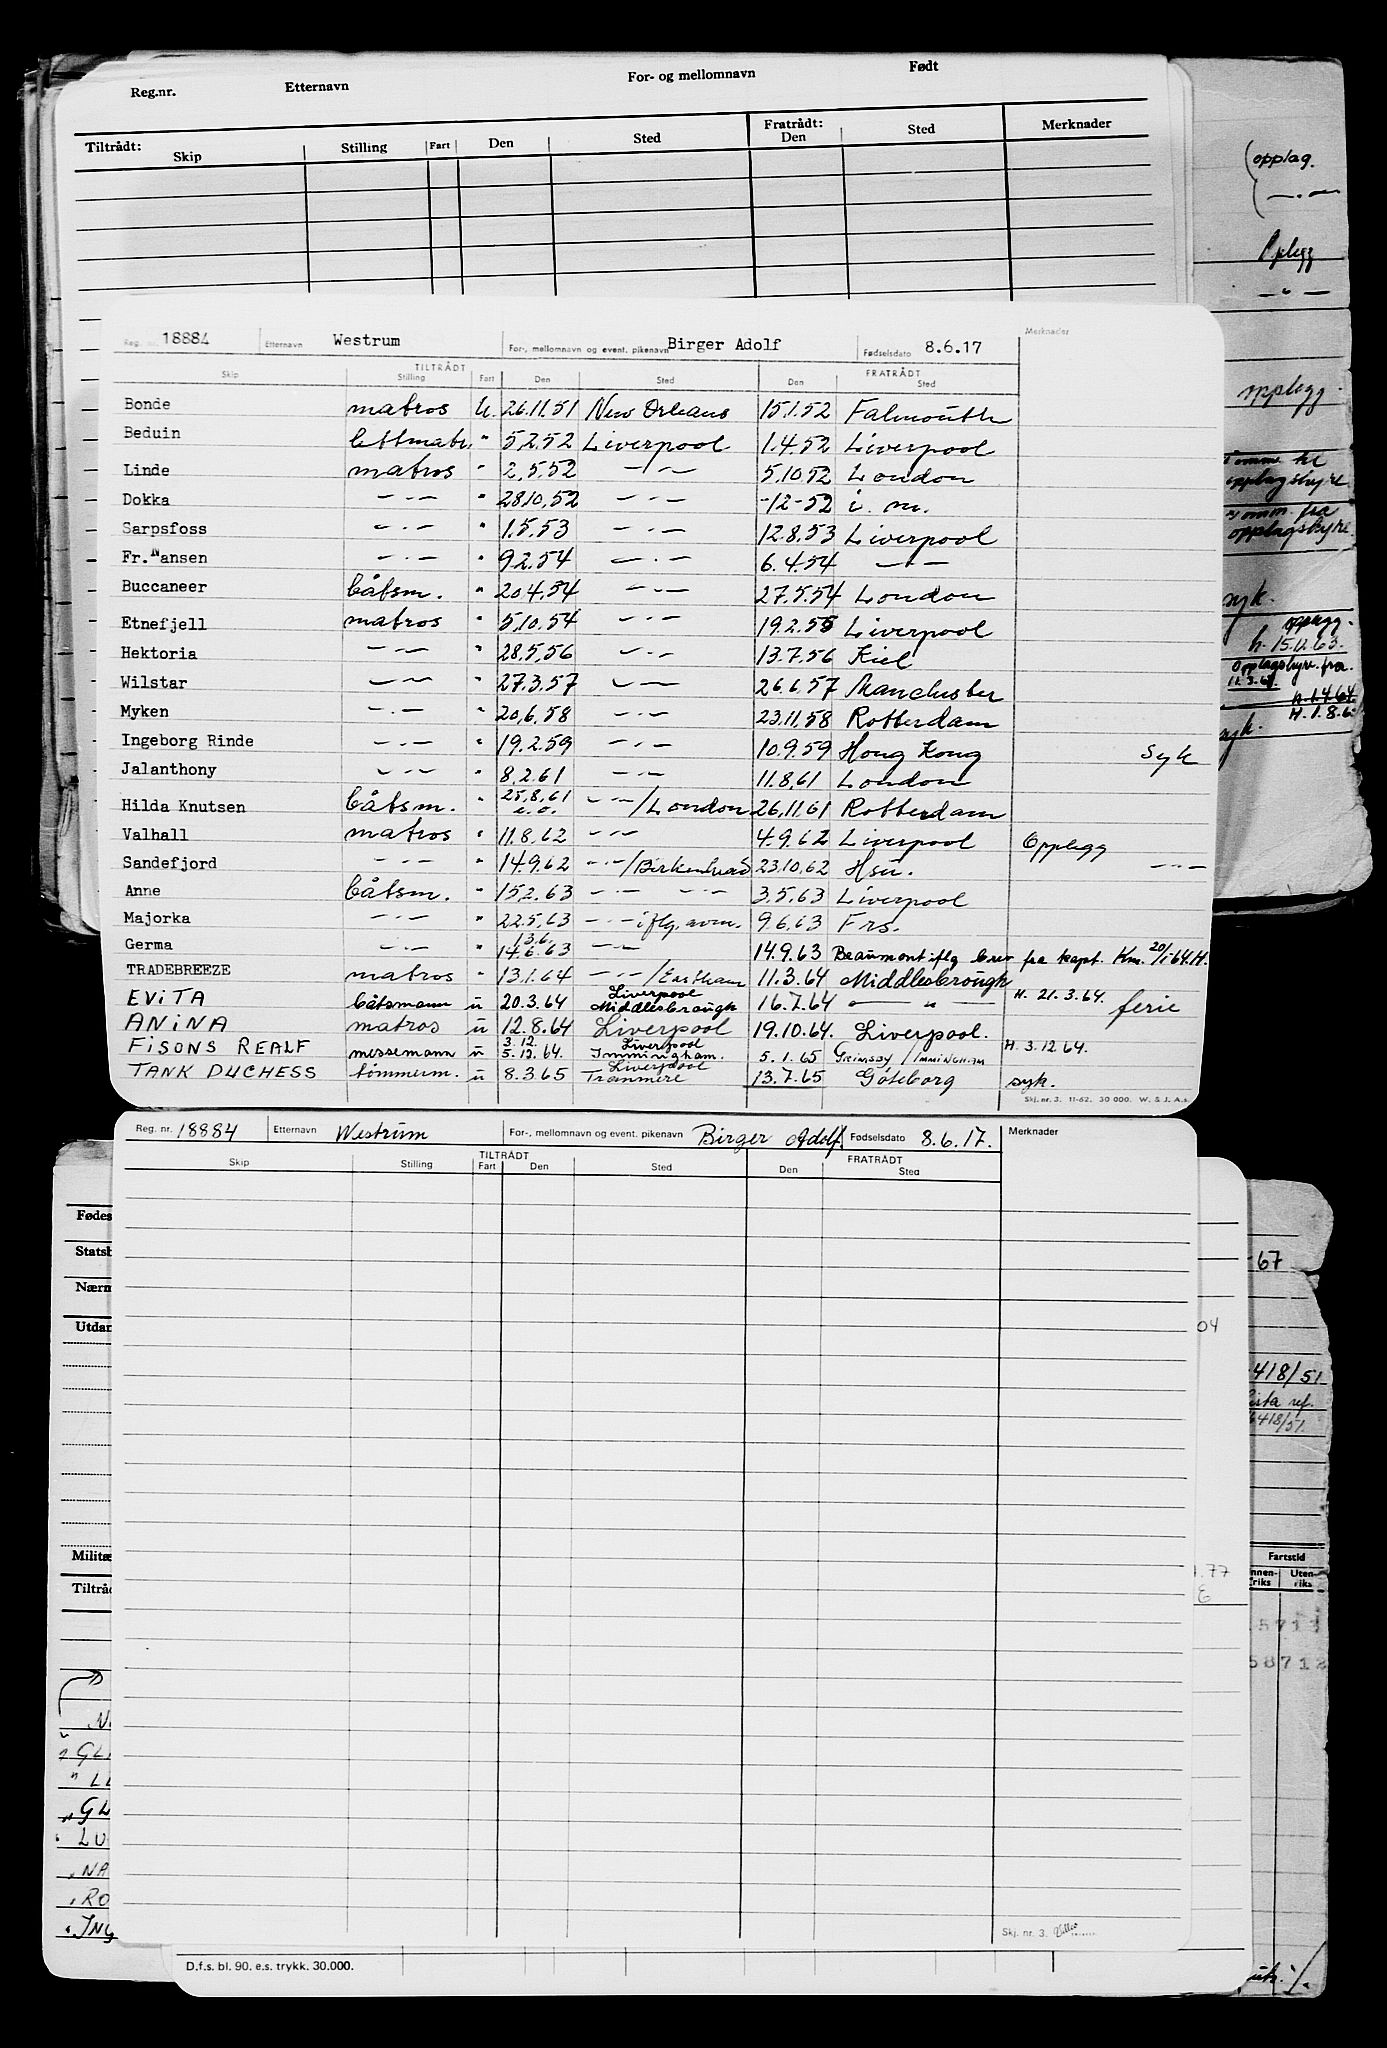 Reg.nr. Etternavn For- og mellomnavn Født
Tiltrådt: Skip Stilling Fart Den Sted Fratrådt: Den Sted Merknader
(opplag.
Oplegg
opplegg
Reg. nr. 18884 Etternavn Westrum For-, mellomnavn og event. pikenavn Birger Adolf Fødselsdato 8.6.17 Merknader
TILTRÅDT FRATRÅDT
Skip Stilling Fart Den Sted Den Sted
Bonde matros U. 26.11.51 New Orleans 15.1.52 Falmouth
Beduin lettmatr. " 5.2.52 Liverpool 1.4.52 Liverpool
Linde matros " 2.5.52 —"— 5.10.52 London
Dokka —"— " 28.10.52 —"— -12-52 i. m.
Sarpsfoss —"— " 1.5.53 —"— 12.8.53 Liverpool
Fr. Hansen —"— " 9.2.54 —"— 6.4.54 —"—
Buccaneer båtsm. " 20.4.54 —"— 27.5.54 London
Etnefjell matros " 5.10.54 —"— 19.2.55 Liverpool
Hektoria —"— " 28.5.56 —"— 13.7.56 Kiel
Wilstar —"— " 27.3.57 —"— 26.6.57 Manchester
Myken —"— " 20.6.58 —"— 23.11.58 Rotterdam
Ingeborg Rinde —"— " 19.2.59 —"— 10.9.59 Hong Kong Syk
Jalanthony —"— " 8.2.61 —"— 11.8.61 London
Hilda Knutsen båtsm. " 25.8.61 e.o. —"—/London 26.11.61 Rotterdam
Valhall matros " 11.8.62 —"— 4.9.62 Liverpool Opplegg
Sandefjord —"— " 14.9.62 —"—/Birkenhead 23.10.62 Hsu. —"—
Anne båtsm. " 15.2.63 —"— —"— 3.5.63 Liverpool
Majorka —"— " 22.5.63 —"— iflg. avm. 9.6.63 Frs.
Germa —"— 13.6. 14.6.63 —"— 14.9.63 Beaumont iflg brev fra kapt. Km. 20/1 64.H.
TRADEBREEZE matros " 13.1.64 —"—/Eastham 11.3.64 Middlesbrough
EVITA båtsmann u 20.3.64 Liverpool Middlesbrough 16.7.64 —"— H. 21.3.64. ferie
ANINA matros u 12.8.64 Liverpool 19.10.64. Liverpool.
FISONS REALF messemann u 3.12. 5.12.64. Liverpool Immingham. 5.1.65 GRIMSBY/IMMINGHAM H. 3.12.64.
TANK DUCHESS tømmerm. u 8.3.65 Liverpool Tranmere 13.7.65 Göteborg syk.
Skj. nr. 3. 11-62. 30 000. W. & J. A.s.
opplagsbyre
omm. fra
opplagsbyre
syk.
opplegg.
h. 15.12.63.
Opplagsbyre. fra.
11.3.64.
H. 1.4.64.
syk.
Reg. nr. 18884 Etternavn Westrum For-, mellomnavn og event. pikenavn Birger Adolf. Fødselsdato 8.6.17. Merknader
TILTRÅDT FRATRÅDT
Skip Stilling Fart Den Sted Den Sted
Skj. nr. 3.
Fødes
Statsb
Nærm
Utdan
Militæ
Tiltråd
GL
LU
NA
RO
ING
67
04
418/51
418/51
Fartstid
nnen-riks Uten-riks
.77
E
5711
58712
D.f.s. bl. 90. e.s. trykk. 30.000.